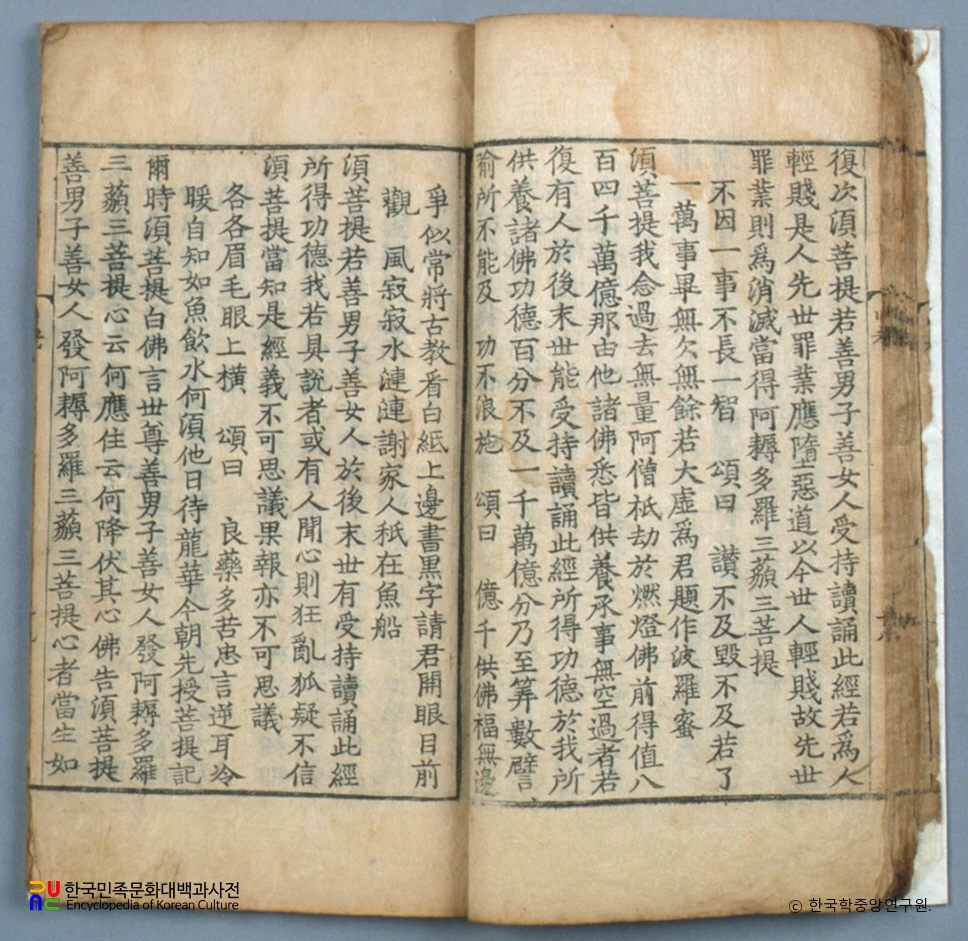 復次湏菩提若善男子善女人受持讀誦此經若爲人
輕賤是人先世罪業應墮惡道以今世人輕賤故先世
罪業則爲消滅當得阿耨多羅三藐三菩提
不因一事不長一智 頌曰 讃不及毁不及若了
一萬事畢無欠無餘若大虛爲君題作波羅蜜
湏菩提我念過去無量阿僧祇劫於燃燈佛前得值八
百四千萬億那由他諸佛悉皆供養承事無空過者若
復有人於後末世能受持讀誦此經所得功德於我所
供養諸佛功德百分不及一千萬億分乃至筭數譬
喻所不能及 功不浪施 頌曰 億千供佛福無邊
爭似常將古教看白紙上邊書黒字請君開眼目前
觀 風寂寂水漣漣謝家人秖在魚船
湏菩提若善男子善女人於後末世有受持讀誦此經
所得功德我若具說者或有人聞心則狂亂狐疑不信
湏菩提當知是經義不可思議果報亦不可思議
各各眉毛眼上横 頌曰 良藥多苦忠言逆耳冷
暖自知如魚飮水何湏他日待龍華今朝先授菩提記
爾時湏菩提白佛言世尊善男子善女人發阿耨多羅
三藐三菩提心云何應住云何降伏其心佛告湏菩提
善男子善女人發阿耨多羅三藐三菩提心者當生如
한국민족문화대백과사전
Encyclopedia of Korean Culture
© 한국학중앙연구원.